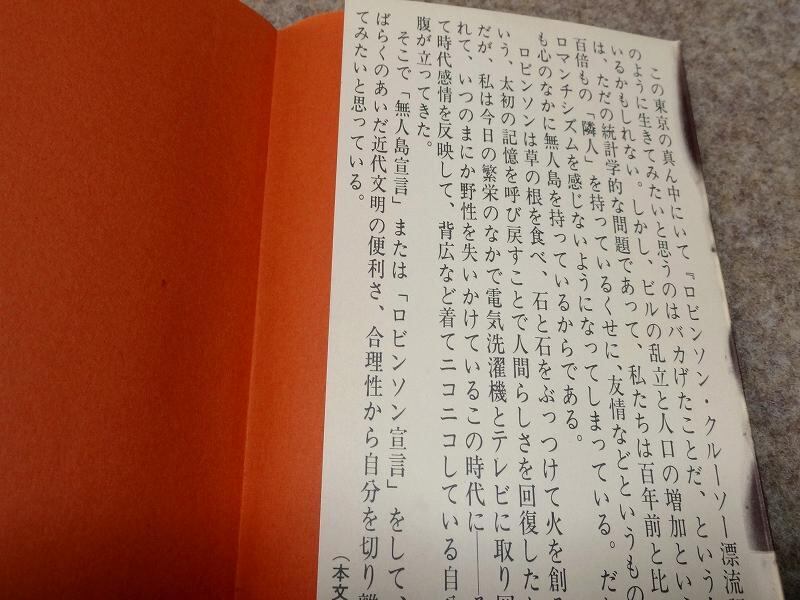 この東京の真ん中にいて『ロビンソン・クルーソー漂流
のように生きてみたいと思うのはバカげたことだ、という
いるかもしれない。しかし、ビルの乱立と人口の増加とい
は、ただの統計学的な問題であって、私たちは百年前と比
百倍もの「隣人」を持っているくせに、友情などというもの
ロマンチシズムを感じないようになってしまっている。だ
も心のなかに無人島を持っているからである。
ロビンソンは草の根を食べ、石と石をぶっつけて火を創
いう、太初の記憶を呼び戻すことで人間らしさを回復した
だが、私は今日の繁栄のなかで電気洗濯機とテレビに取り
れて、いつのまにか野性を失いかけているこの時代に――
て時代感情を反映して、背広など着てニコニコしている自
腹が立ってきた。
そこで「無人島宣言」または「ロビンソン宣言」をして、
ばらくのあいだ近代文明の便利さ、合理性から自分を切り
てみたいと思っている。
（本文